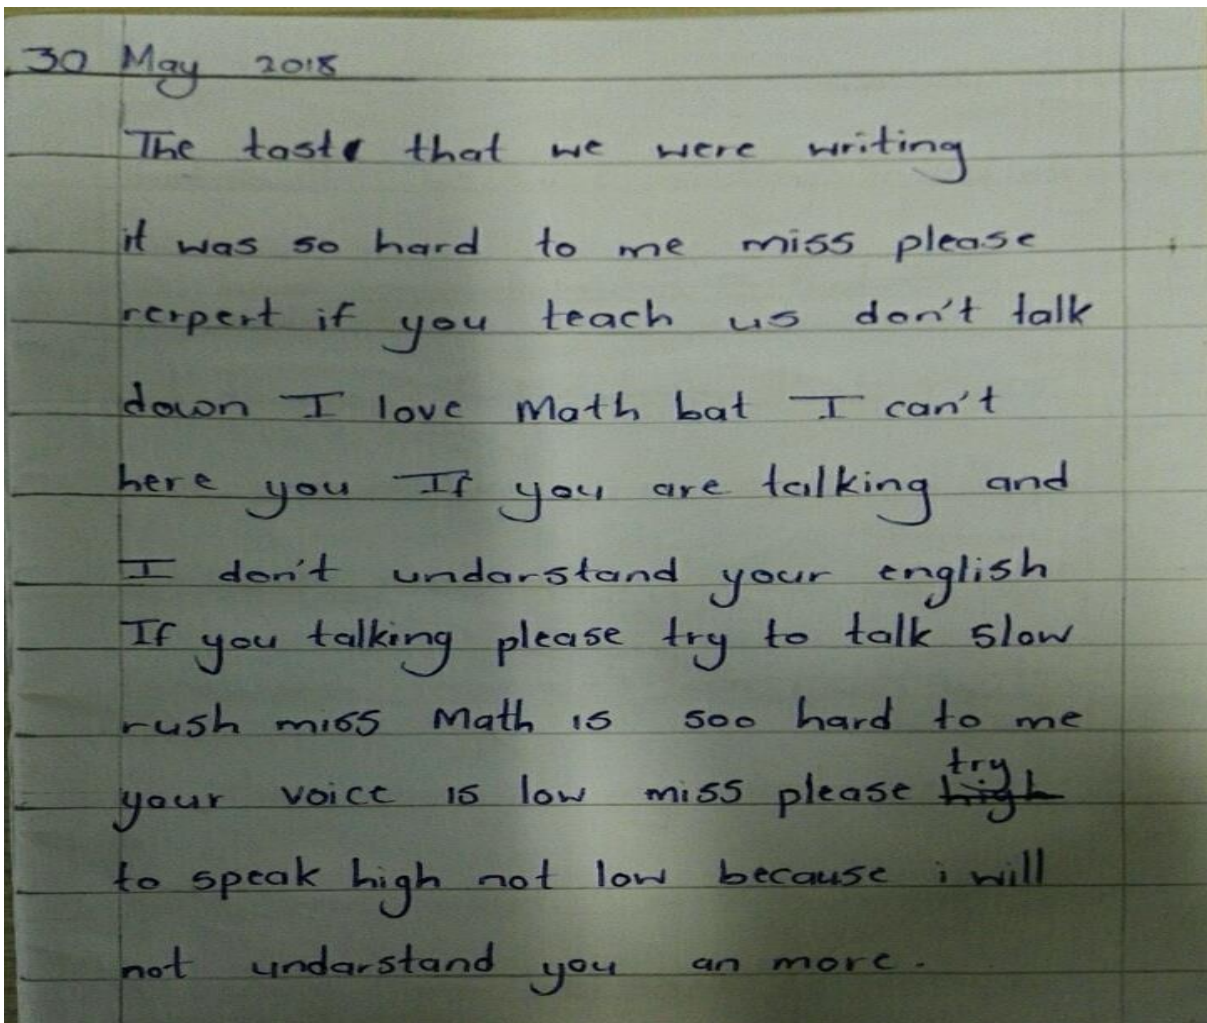 30 May 2018
The taste that we were writing
it was so hard to me miss please
rerpert if you teach us don't talk
down I love Math bat I can't
here you If you are talking and
I don't undarstand your english
If you talking please try to talk slow
rush miss Math is soo hard to me
your voice is low miss please try high
to speak high not low because i will
not undarstand you an more.